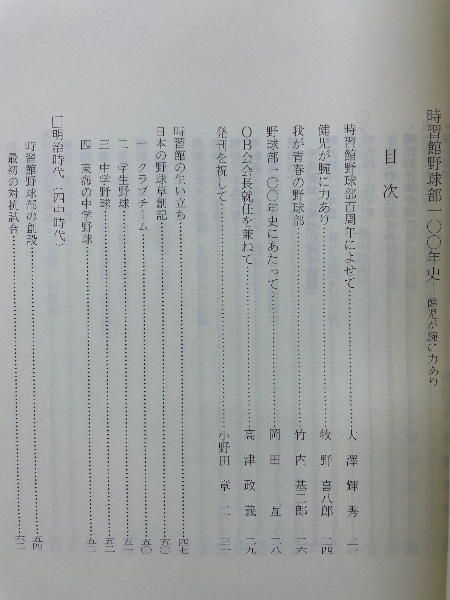 時習館野球部一〇〇年史 健児が腕に力あり
目次
時習館野球部百周年によせて……大澤輝秀
健児が腕に力あり……牧野喜八郎 二四
我が青春の野球部……竹内基二郎 二六
野球部一〇〇年史にあたって……岡田亙 二八
OB会会長就任を兼ねて……高津政義 二九
発刊を祝して……小野田章二 三一
時習館の生い立ち……四七
日本の野球草創記……五〇
一 クラブチーム……五〇
二 学生野球……五一
三 中学野球……五二
四 東海の中学野球……五二
□明治時代(四中時代)
時習館野球部の創設……五四
最初の対抗試合……六二